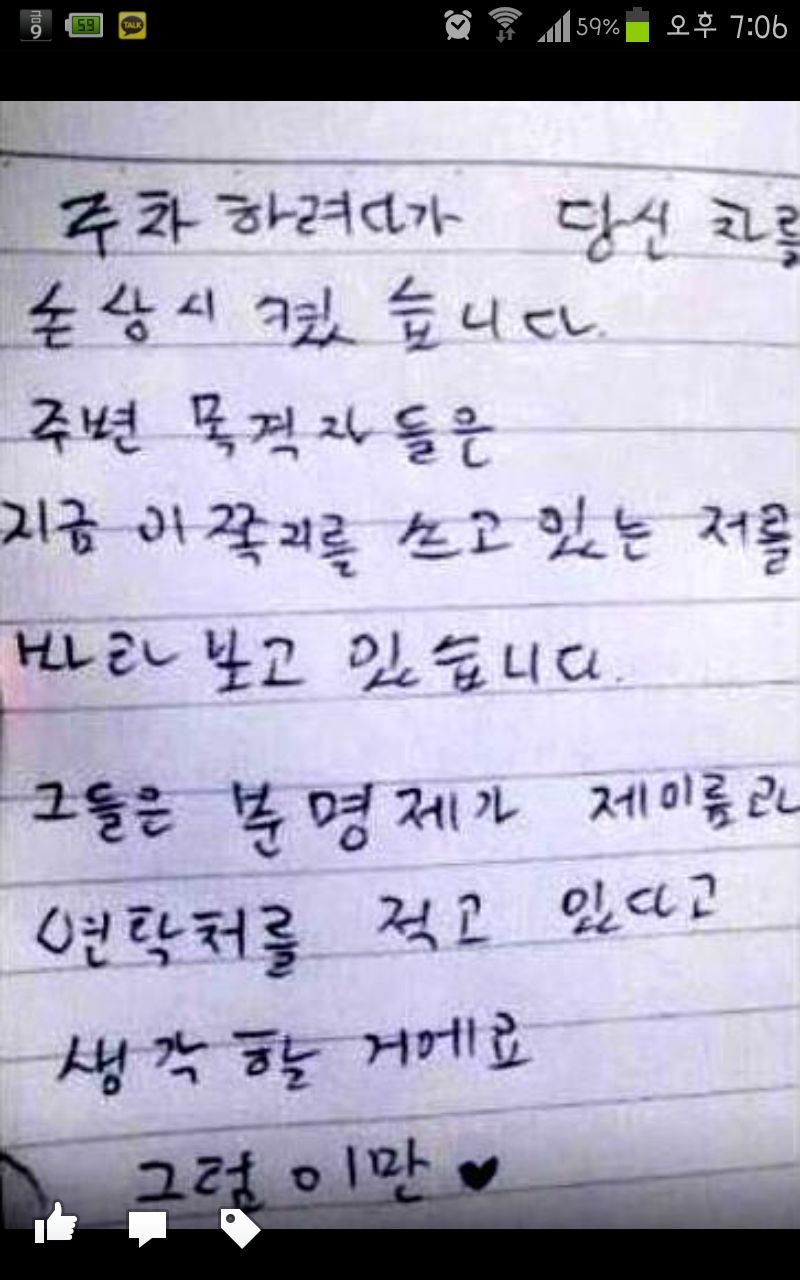 금
9
59
TALK
59%
오후 7:06
주차하려다가 당신 차를
손상시켰습니다.
주변 목격자들은
지금 이 쪽지를 쓰고 있는 저를
바라보고 있습니다.
그들은 분명 제가 제이름과
연락처를 적고 있다고
생각할 거에요
그럼 이만 ♥